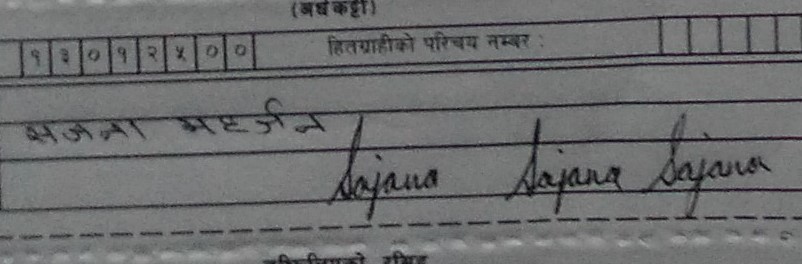 (अर्धकट्टी)
१ ३ ० १ २ ५ ० ० हितग्राहीको परिचय नम्बर :
सजना महर्जन
Sajana Sajana Sajana